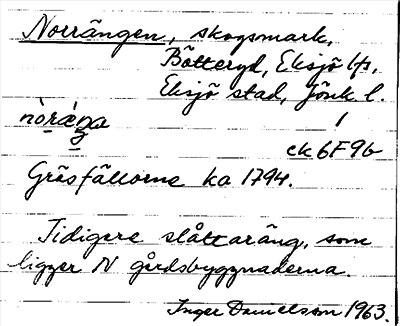 Norrängen, skogsmark,
Bötteryd, Eksjö lfs,
Eksjö stad, Jönk. l.
1
ek 6F9b
Gräsfällorne ka 1794.
Tidigare slåtteräng, som
ligger N gårdsbyggnaderna.
Inger Danielsson 1963.